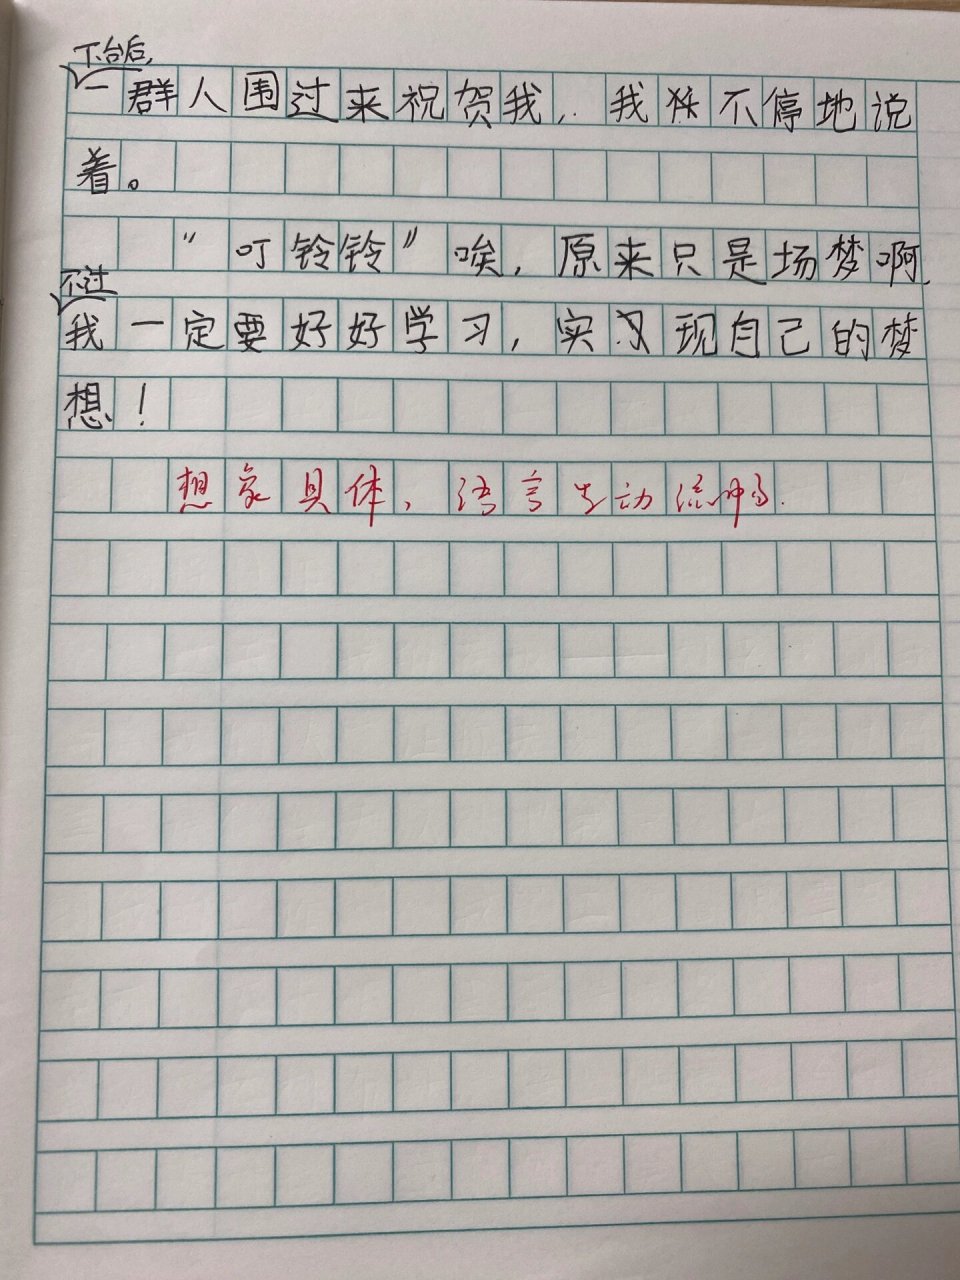 下台后，
一群人围过来祝贺我，我不停地说
着。
“叮铃铃”唉，原来只是场梦啊，
不过
我一定要好好学习，实现自己的梦
想！
想象具体，语言生动流畅。